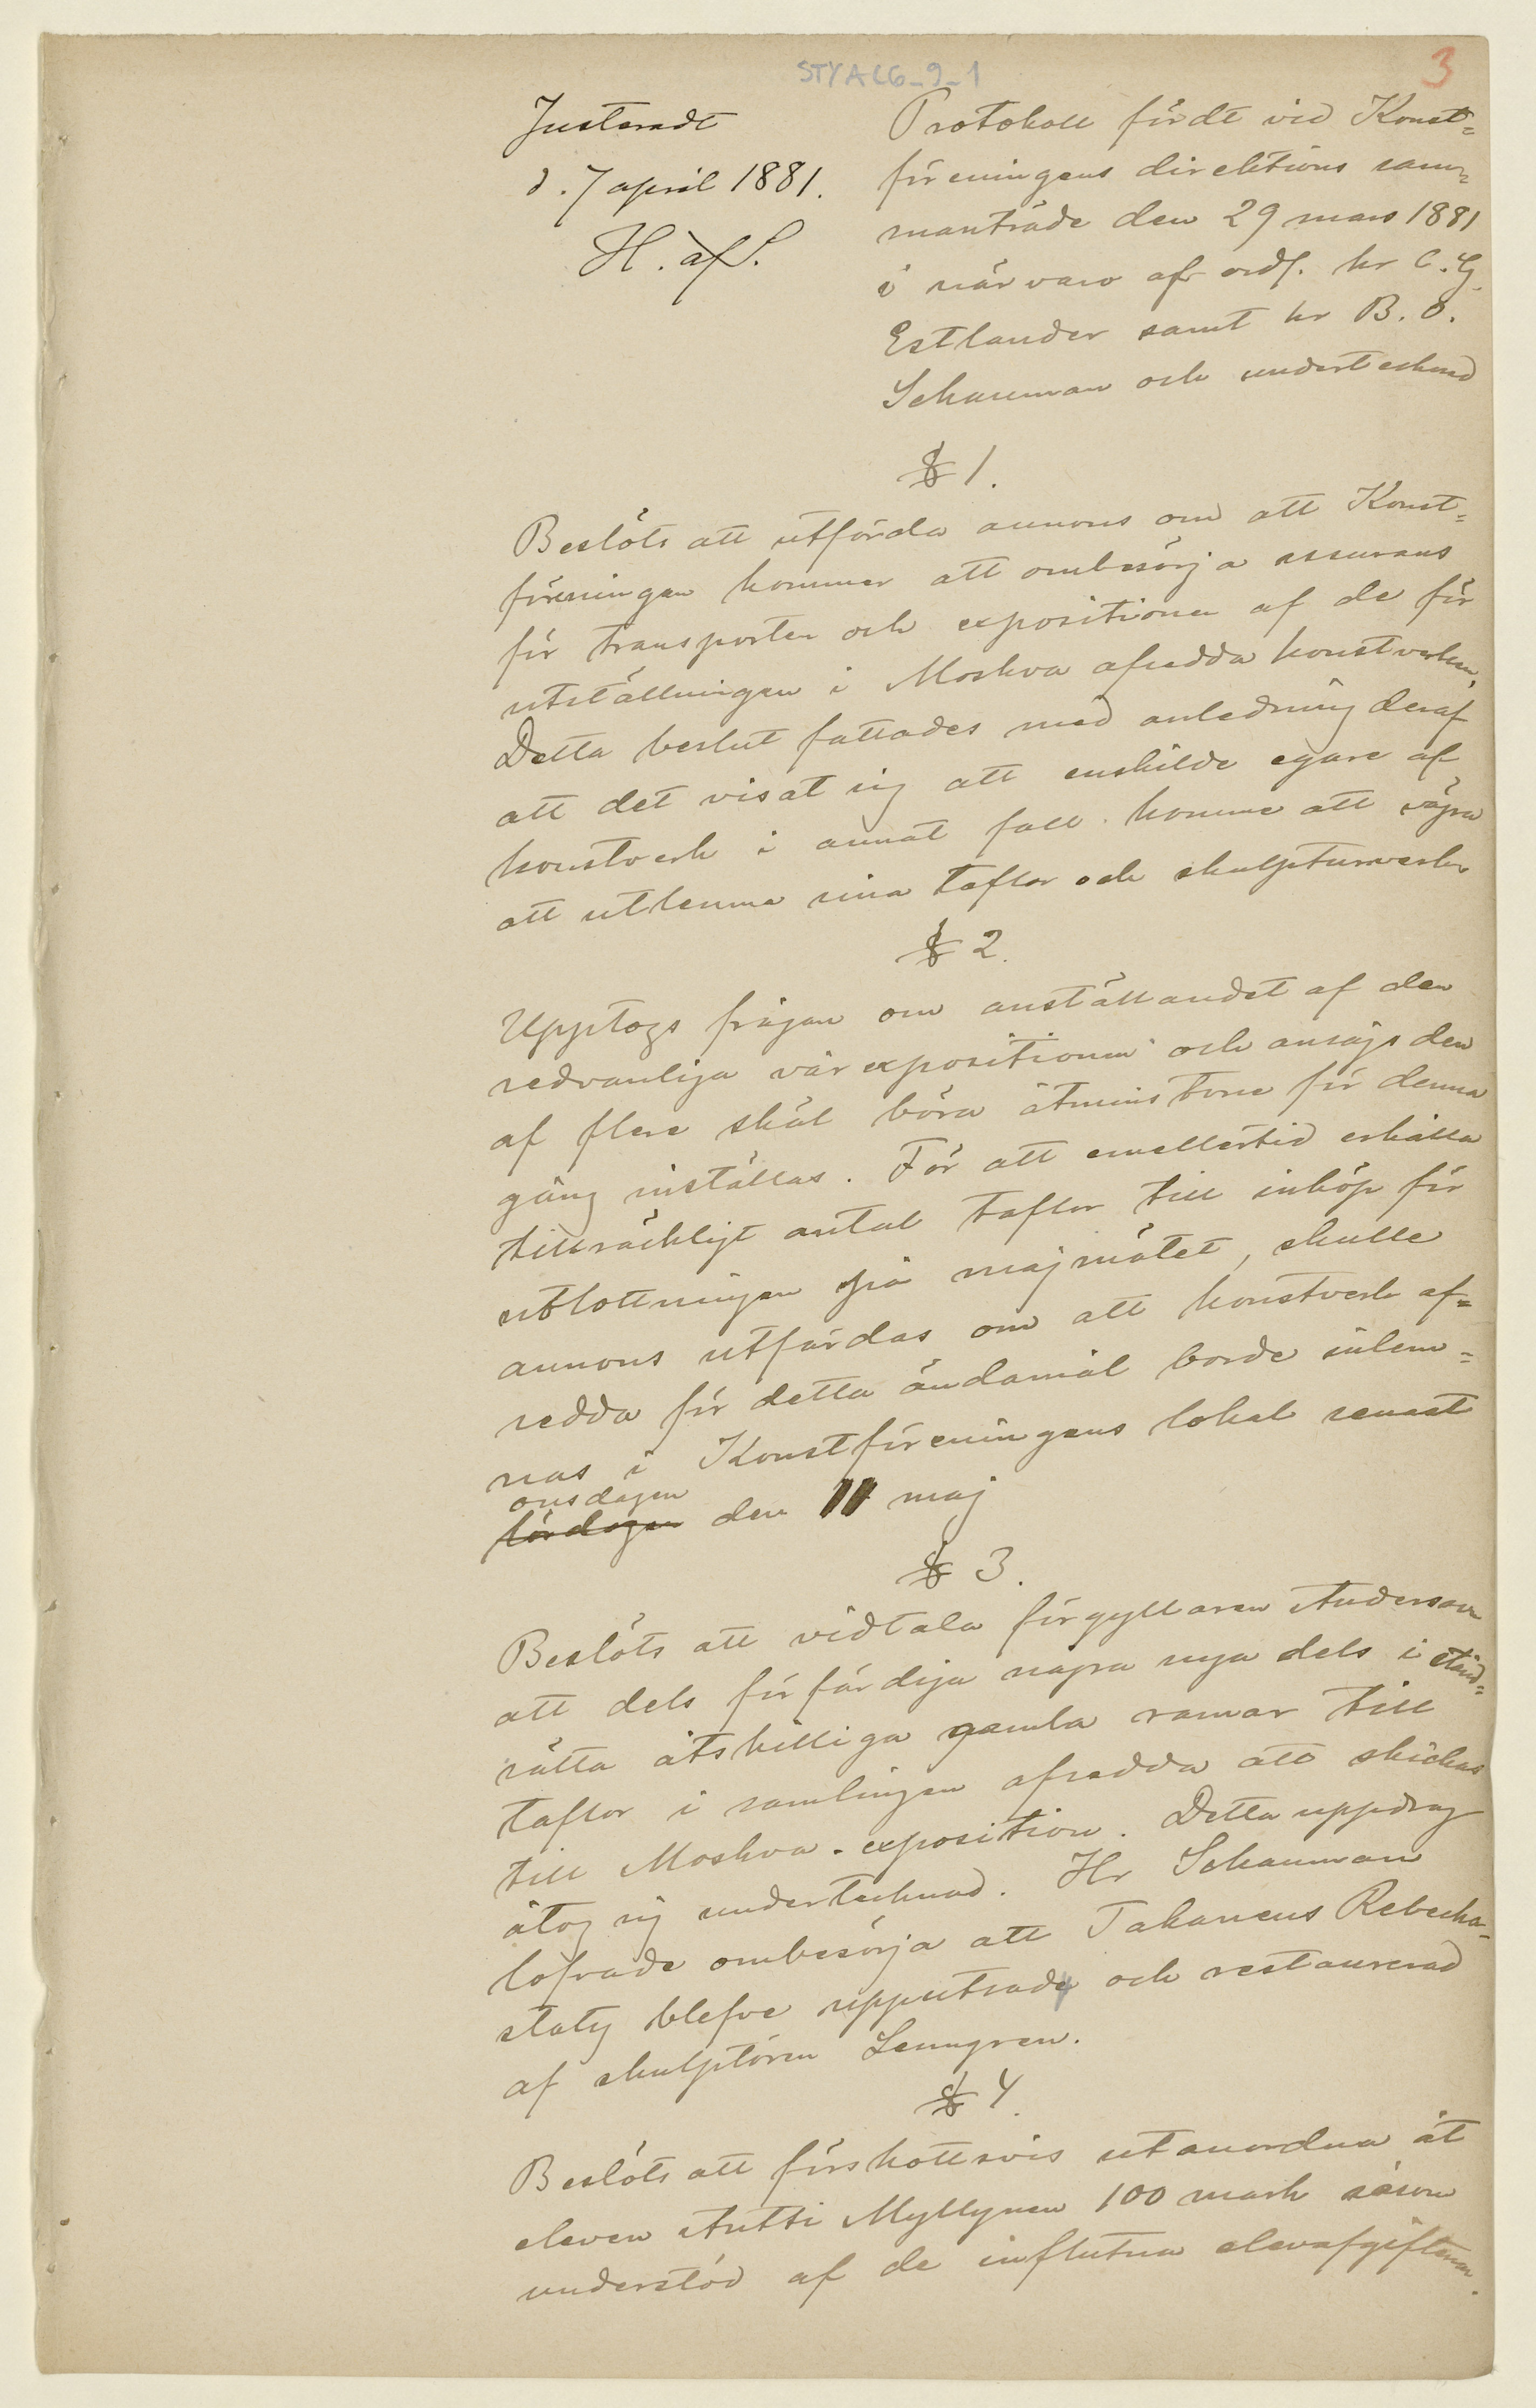 STYALG_9_1
3
Justeradt
d. 7 april 1881.
H. af S.
Protokoll fördt vid Konst=
föreningens direktions sam=
manträde den 29 mars 1881
i närvaro af ordf. hr C. G.
Estlander samt hr B. O.
Schauman och undertecknad
§ 1.
Beslöts att utfärda annons om att Konst=
föreningen kommer att ombesörja assurans
för transporten och expositionen af de för
utställningen i Moskva afsedda konstverken.
Detta beslut fattades med anledning deraf
att det visat sig att enskilde egare af
konstverk i annat fall komme att vägra
att utlemna sina taflor och skulpturverk
§ 2.
Upptogs frågan om anställandet af den
sedvanliga vårexpositionen och ansågs den
af flere skäl böra åtminstone för denna
gång inställas. För att emellertid erhålla
tillräckligt antal taflor till inköp för
utlottningen på majmötet, skulle
annons utfärdas om att konstverk af=
sedda för detta ändamål borde inlem=
nas i Konstföreningens lokal senast
onsdagen
lördagen den 11 maj
§ 3.
Beslöts att vidtala förgyllaren Anderson
att dels förfärdiga några nya dels i stånd=
sätta åtskilliga gamla ramar till
taflor i samlingen afsedda att skickas
till Moskva-exposition. Detta uppdrag
åtog sig undertecknad. Hr Schauman
lofvade ombesörja att Takanens Rebecka-
staty blefve upputsad och restaurerad
af skulptören Lenngren.
§ 4.
Beslöts att förskottsvis utanordna åt
eleven Antti Myllynen 100 mark såsom
understöd af de influtna elevafgifterna.